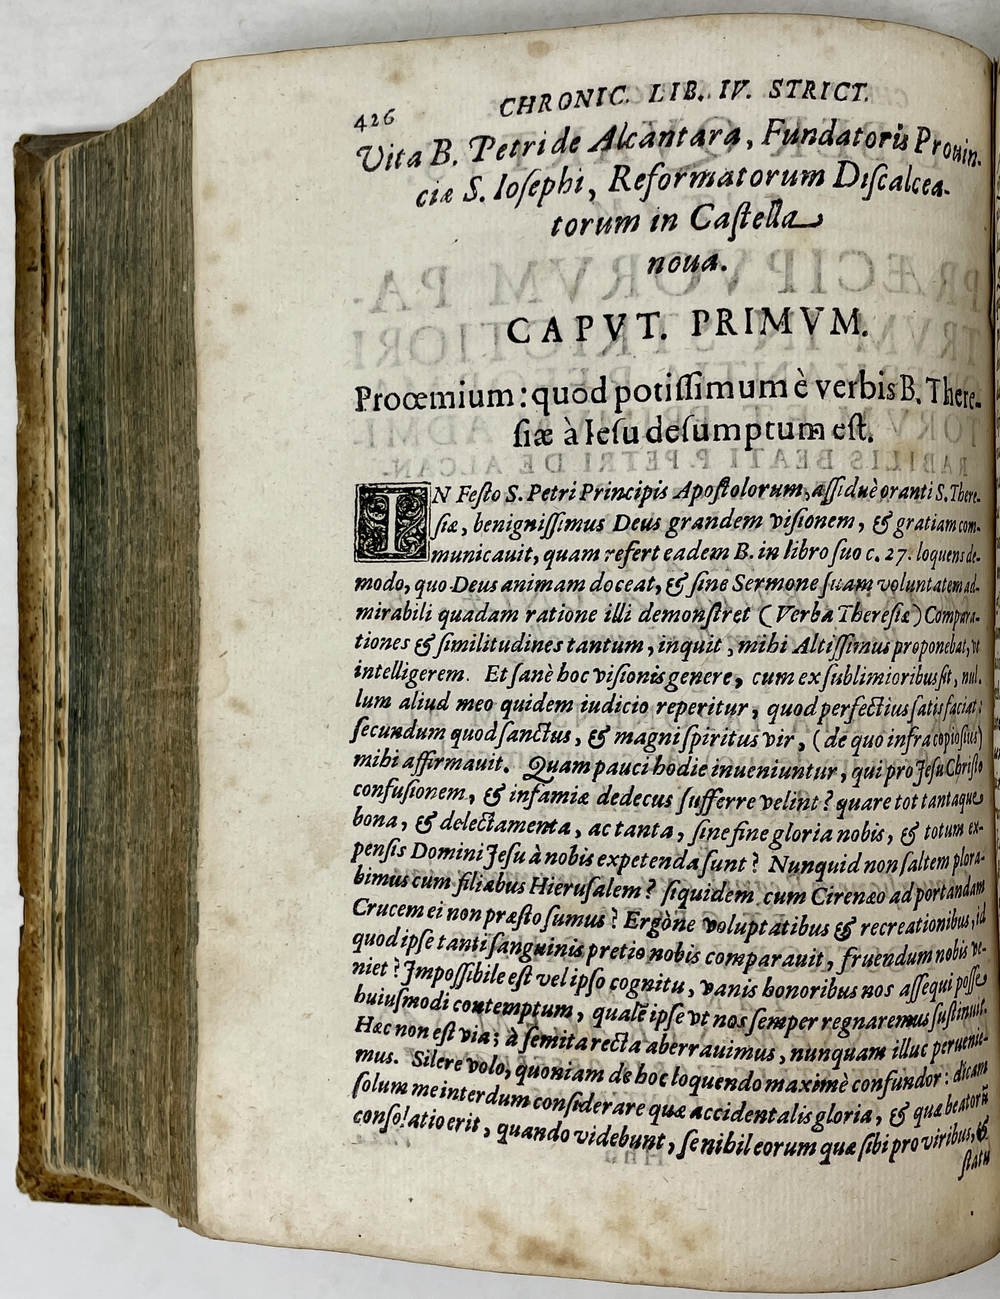 426 CHRONIC. LIB. IV. STRICT.
Vita B. Petri de Alcantara, Fundatoris Prouin-
ciæ S. Iosephi, Reformatorum Discalcea-
torum in Castella
noua.
CAPVT. PRIMVM.
Proœmium: quod potissimum è verbis B. There-
siæ à Iesu desumptum est.
IN Festo S. Petri Principis Apostolorum, assiduè oranti S. There-
siæ, benignissimus Deus grandem visionem, & gratiam com-
municauit, quam refert eadem B. in libro suo c. 27. loquens de
modo, quo Deus animam doceat, & sine Sermone suam voluntatem ad-
mirabili quadam ratione illi demonstret (Verba Theresiæ) Compara-
tiones & similitudines tantum, inquit, mihi Altissimus proponebat, vt
intelligerem. Et sanè hoc visionis genere, cum ex sublimioribus sit, nul-
lum aliud meo quidem iudicio reperitur, quod perfectius satisfaciat;
secundum quod sanctus, & magni spiritus vir, (de quo infra copiosius)
mihi affirmauit. Quam pauci hodie inueniuntur, qui pro Jesu Christo
confusionem, & infamiæ dedecus sufferre velint? quare tot tantaque
bona, & delectamenta, ac tanta, sine fine gloria nobis, & totum ex-
pensis Domini Jesu à nobis expetenda sunt? Nunquid non saltem plora-
bimus cum filiabus Hierusalem? siquidem cum Cirenæo ad portandam
Crucem ei non præsto sumus? Ergòne voluptatibus & recreationibus, id
quod ipse tanti sanguinis pretio nobis comparauit, fruendum nobis ve-
niet? Jmpossibile est vel ipso cognitu, vanis honoribus nos assequi posse
huiusmodi contemptum, qualē ipse vt nos semper regnaremus sustinuit.
Hæc non est via; à semita recta aberrauimus, nunquam illuc perueni-
mus. Silere volo, quoniam de hoc loquendo maximè confundor: dicam
solum me interdum considerare quæ accidentalis gloria, & quæ beatorū
consolatio erit, quando videbunt, se nihil eorum quæ sibi pro viribus, &
statu